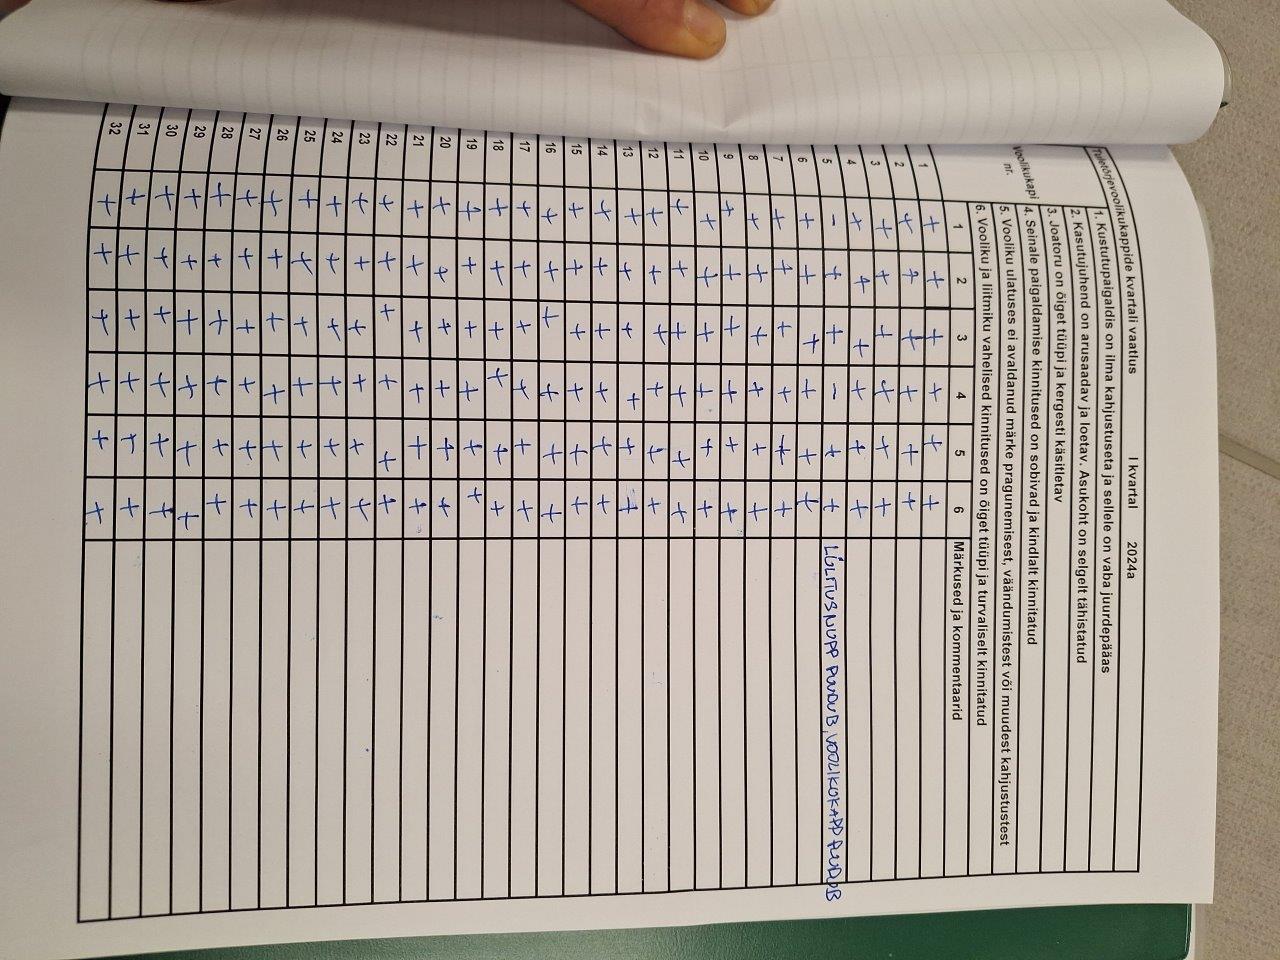 Tuletõrjevoolikukappide kvartali vaatlus I kvartal 2024a
1. Kustutupaigaldis on ilma kahjustuseta ja sellele on vaba juurdepääas
2. Kasutujuhend on arusaadav ja loetav. Asukoht on selgelt tähistatud
3. Joatoru on õiget tüüpi ja kergesti käsitletav
4. Seinale paigaldamise kinnitused on sobivad ja kindlalt kinnitatud
5. Vooliku ulatuses ei avaldanud märke pragunemisest, väändumistest või muudest kahjustustest
6. Vooliku ja liitmiku vahelised kinnitused on õiget tüüpi ja turvaliselt kinnitatud
Voolikukapi nr. 1 2 3 4 5 6 Märkused ja kommentaarid
1 + + + + + +
2 + + + + + +
3 + + + + + +
4 + + + + + +
5 - + + - + + LÜLITUSNUPP PUUDUB, VOOLIKUKAPP PUUDUB
6 + + + + + +
7 + + + + + +
8 + + + + + +
9 + + + + + +
10 + + + + + +
11 + + + + + +
12 + + + + + +
13 + + + + + +
14 + + + + + +
15 + + + + + +
16 + + + + + +
17 + + + + + +
18 + + + + + +
19 + + + + + +
20 + + + + + +
21 + + + + + +
22 + + + + + +
23 + + + + + +
24 + + + + + +
25 + + + + + +
26 + + + + + +
27 + + + + + +
28 + + + + + +
29 + + + + + +
30 + + + + + +
31 + + + + + +
32 + + + + + +